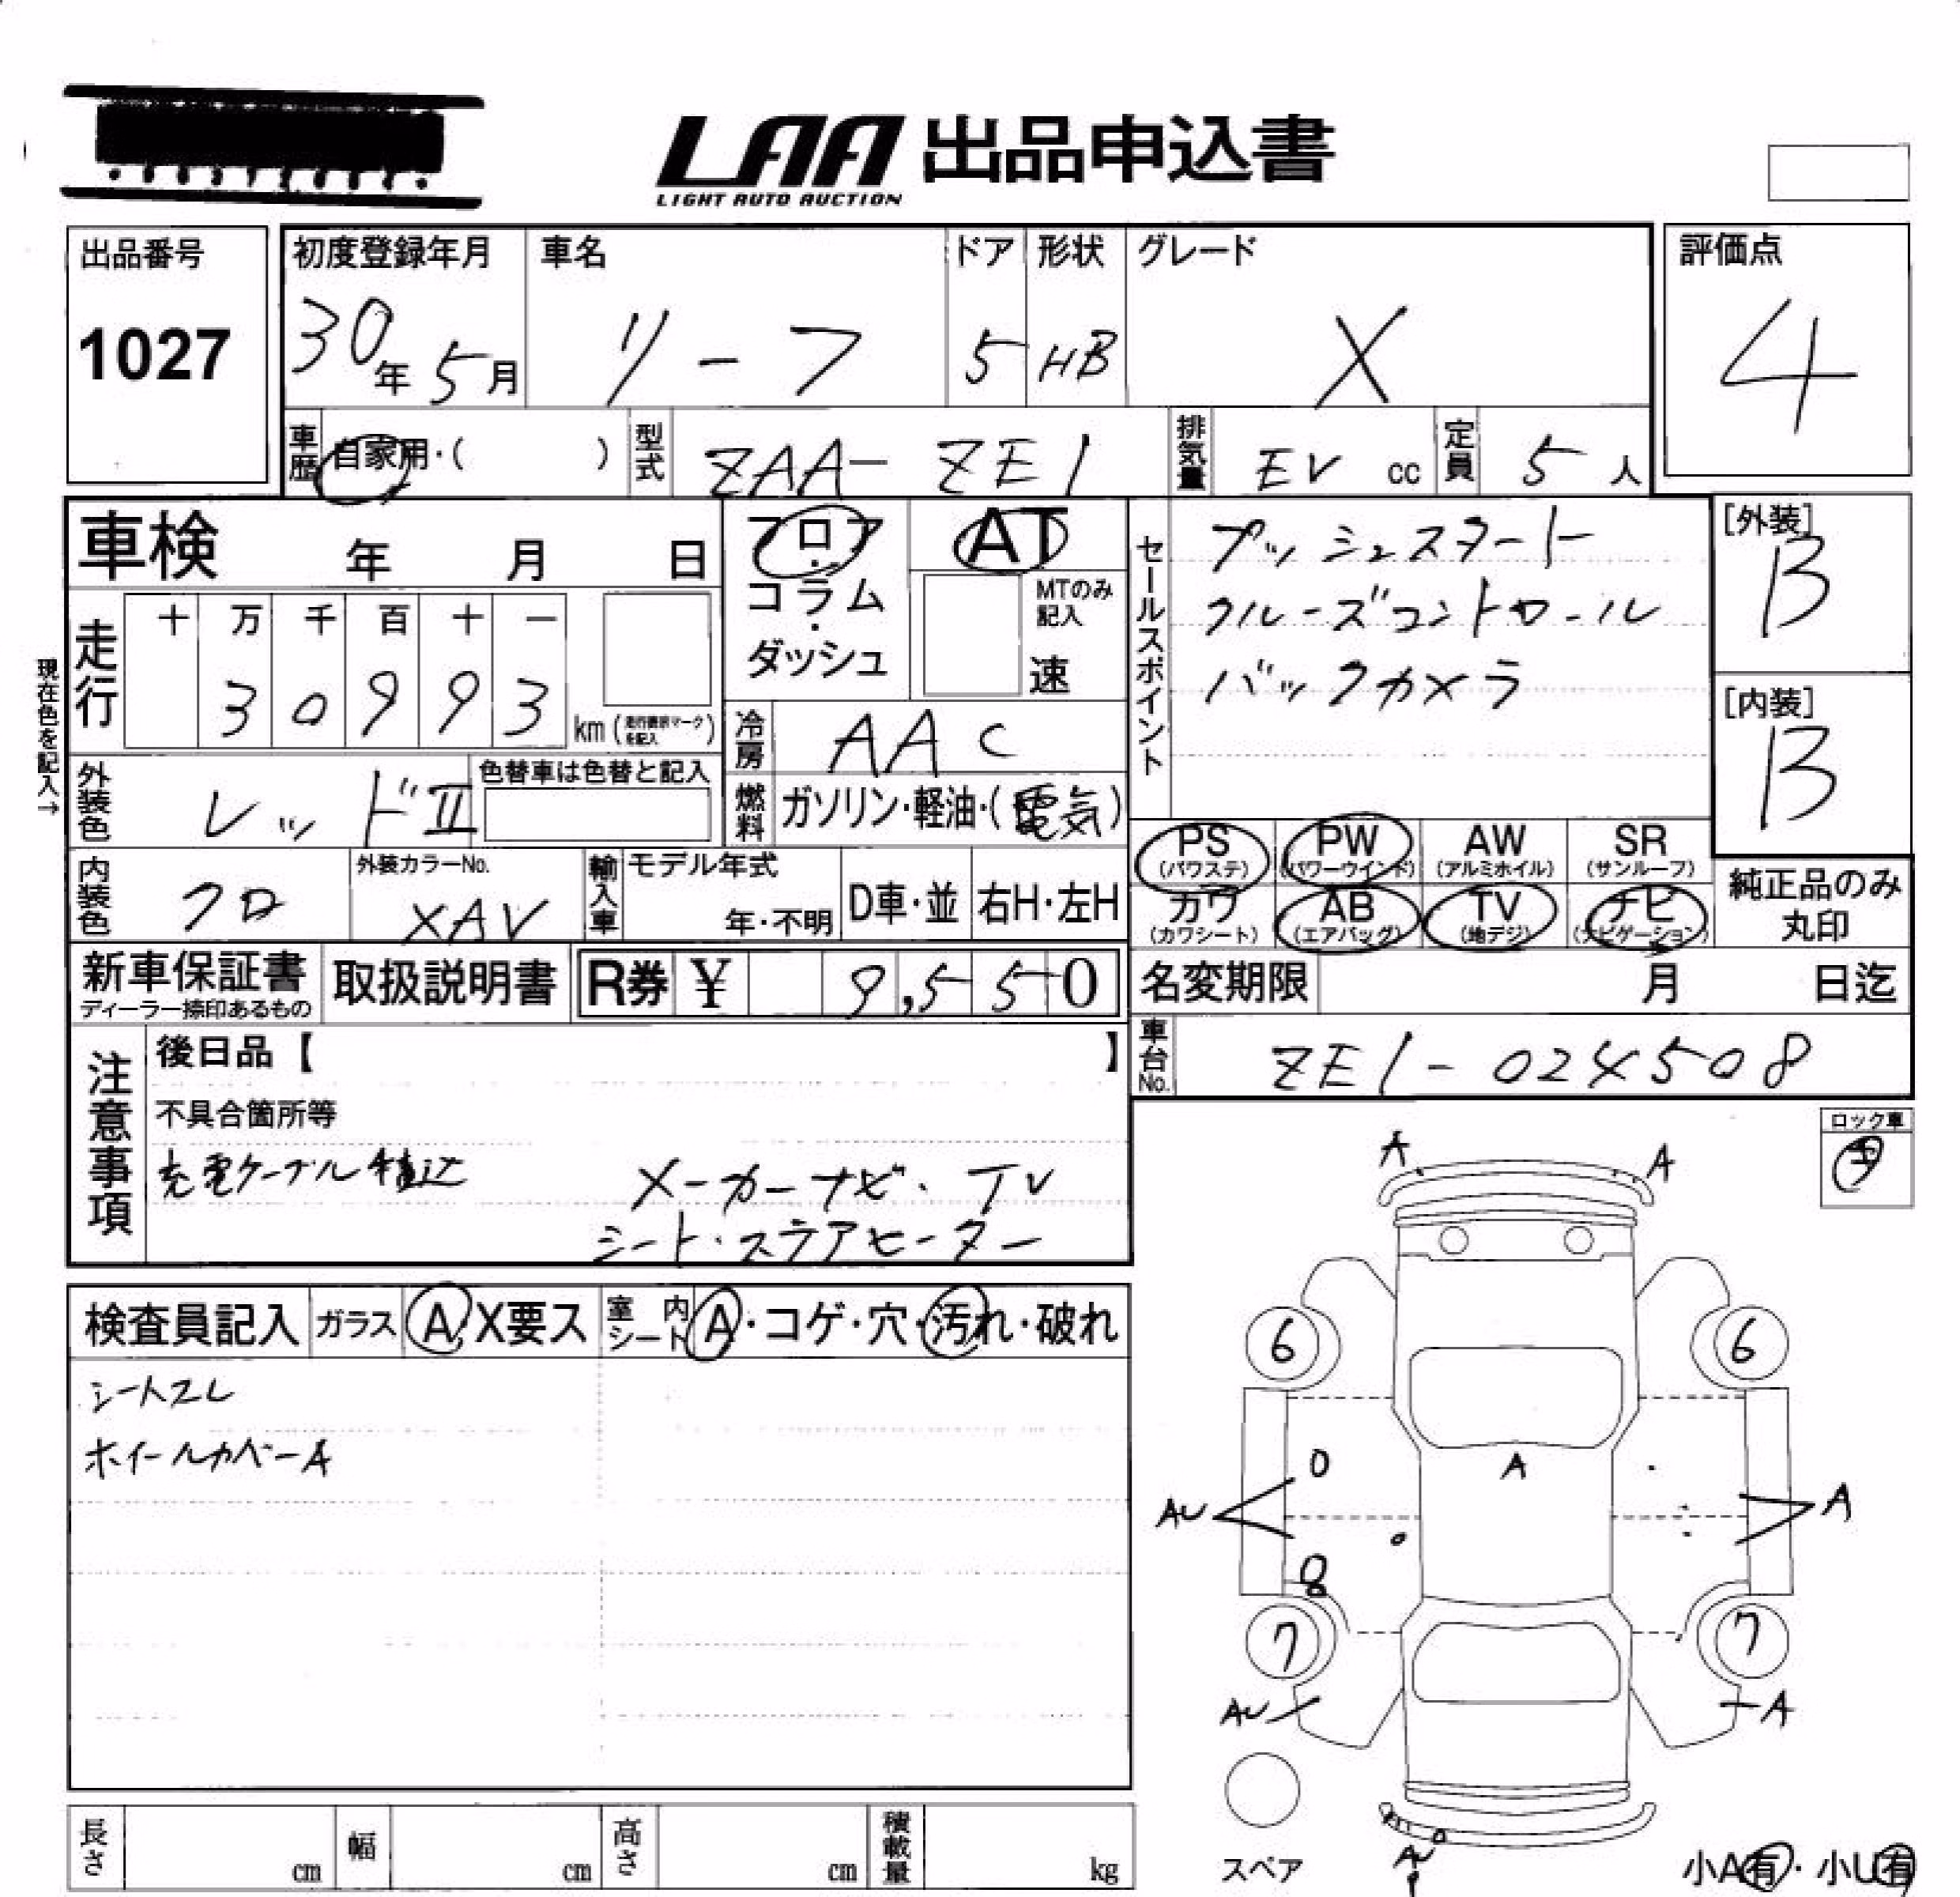 LAA 出品申込書
LIGHT AUTO AUCTION
出品番号
1027
初度登録年月
30年 5月
車名
リーフ
ドア
5
形状
HB
グレード
X
評価点
4
車歴 自家用・( )
型式 ZAA-ZE1
排気量 EV cc
定員 5 人
車検 年 月 日
現在色を記入→
走行
十 万 千 百 十 一
3 0 9 9 3
km (走行機所マーク
を記入)
フロア
・
コラム
・
ダッシュ
AT
MTのみ
記入
速
冷房 AAC
燃料 ガソリン・軽油・(電気)
外装色 レッドⅡ
色替車は色替と記入
内装色 クロ
外装カラーNo.
XAV
輸入車
モデル年式
年・不明
D車・並
右H・左H
新車保証書
ディーラー捺印あるもの
取扱説明書
R券 ¥ 9,550
セールスポイント
プッシュスタート
クルーズコントロール
バックカメラ
[外装]
B
[内装]
B
PS
(パワステ)
PW
(パワーウインド)
AW
(アルミホイル)
SR
(サンルーフ)
カワ
(カワシート)
AB
(エアバッグ)
TV
(地デジ)
ナビ
(ナビゲーション)
純正品のみ
丸印
名変期限 月 日迄
車台No. ZE1-024508
注意事項
後日品【 】
不具合箇所等
充電ケーブル積込
メーカーナビ・TV
シート・ステアヒーター
ロック車
検査員記入
ガラス A X要ス
室内
シート
A・コゲ・穴・汚れ・破れ
シートスレ
ホイールカバーA
A A
6 6
A
AU
A
7 7
AU
A
スペア
AU
小A有・小U有
長さ cm
幅 cm
高さ cm
積載量 kg